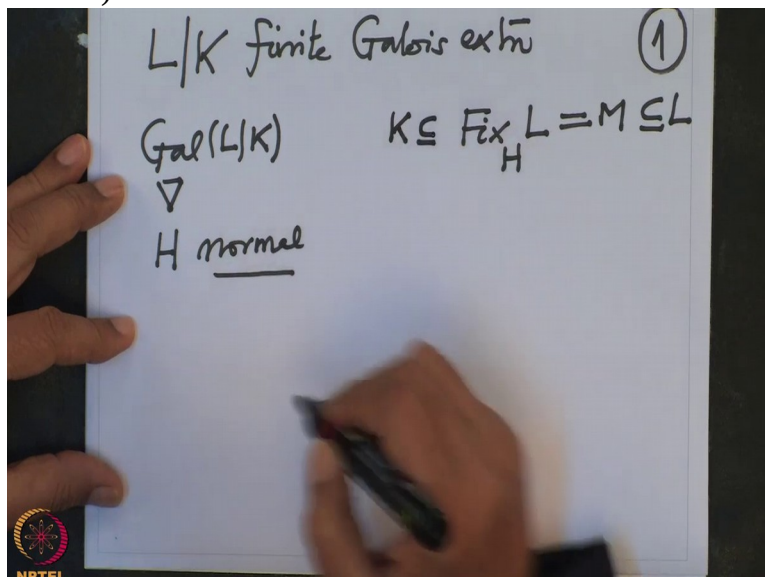 L|K finite Galois extn̄ ①
Gal(L|K) K ⊆ Fix_H L = M ⊆ L
▽
H normal
NPTEL